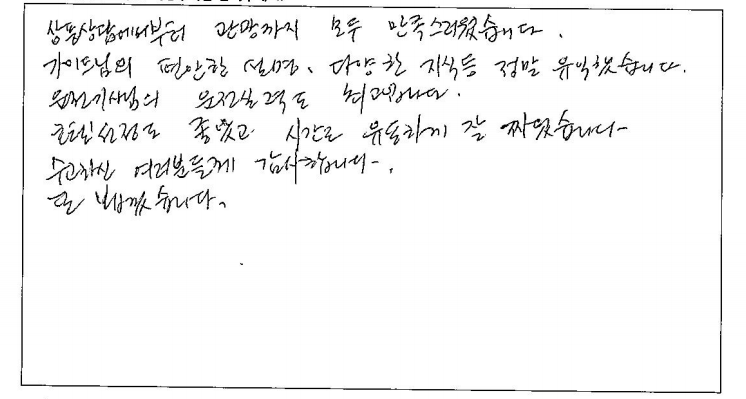 상품상담에서부터 관광까지 모두 만족스러웠습니다.
가이드님의 편안한 설명, 다양한 지식등 정말 유익했습니다.
운전기사님의 운전실력도 최고입니다.
호텔선정도 좋았고 시간도 유동하게 잘 짜였습니다
수고하신 여러분들께 감사합니다.
또 뵙겠습니다.